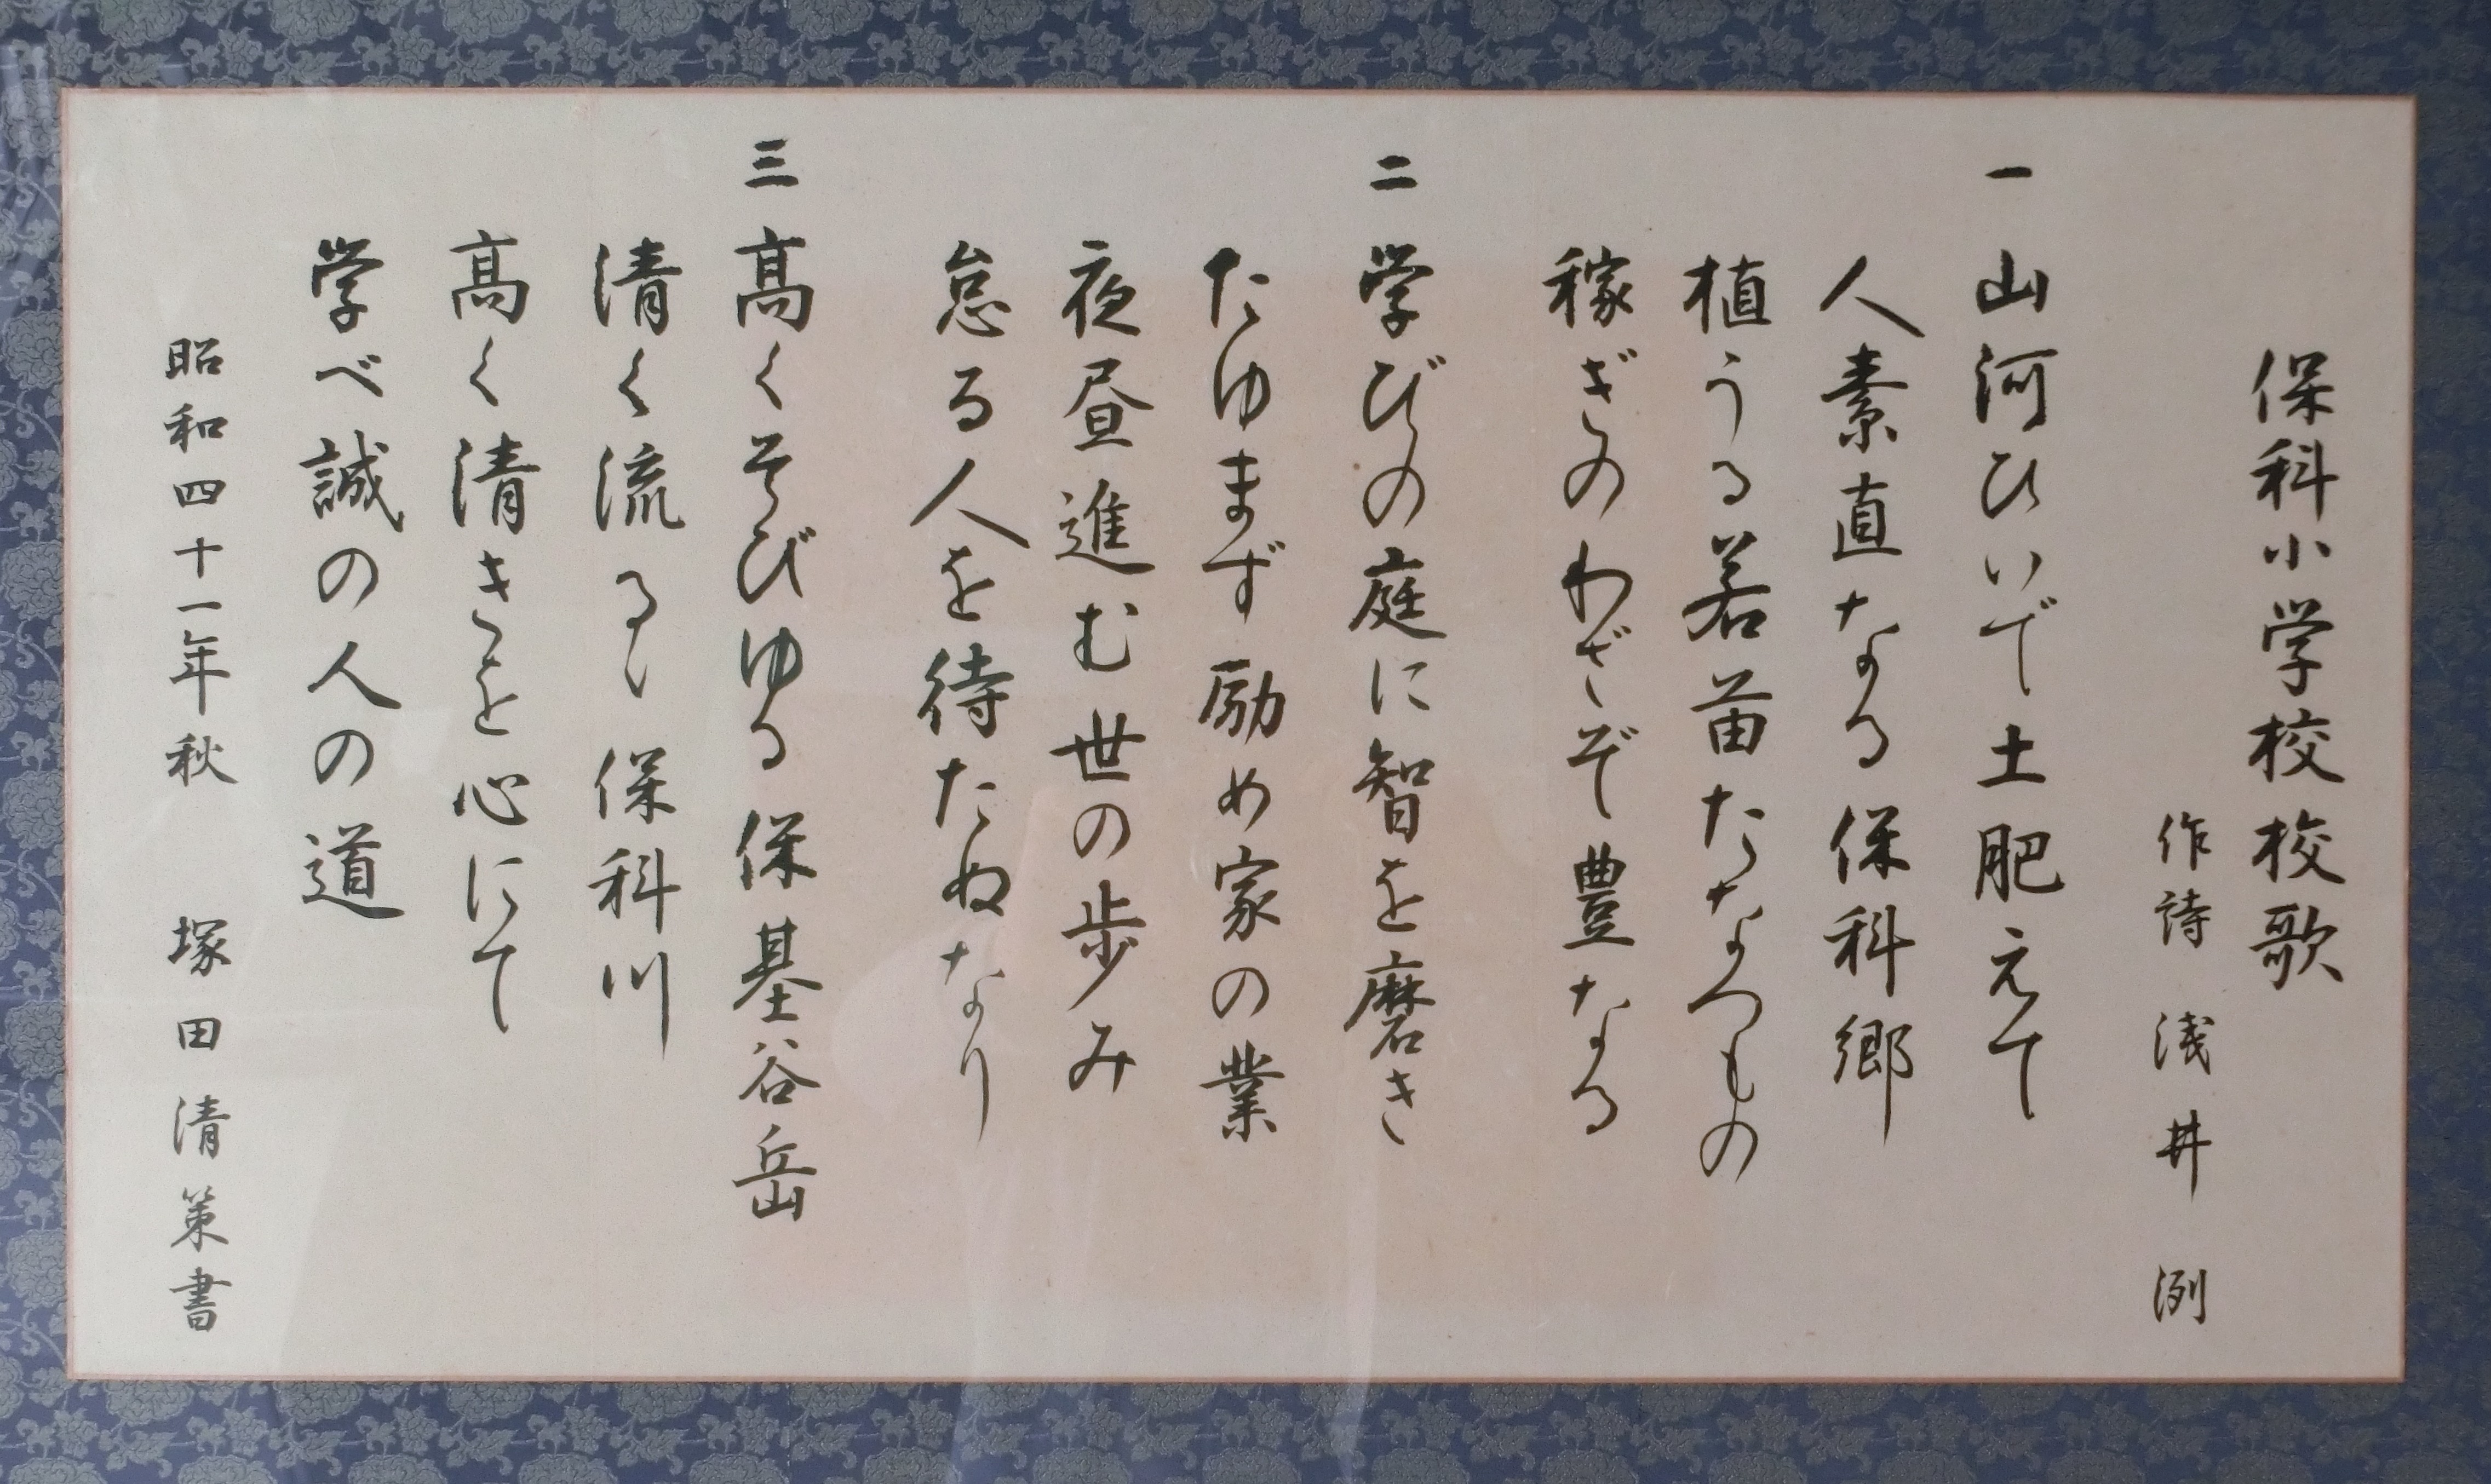 保科小学校校歌
作詩 浅井 洌
一 山河ひいで土肥えて
人素直なる保科郷
植うる若苗たなつもの
稼ぎのわざぞ豊なる
二 学びの庭に智を磨き
たゆまず励め家の業
夜昼進む世の歩み
怠る人を待たぬなり
三 高くそびゆる保基谷岳
清く流るゝ保科川
高く清きを心にて
学べ誠の人の道
昭和四十一年秋 塚田清策書